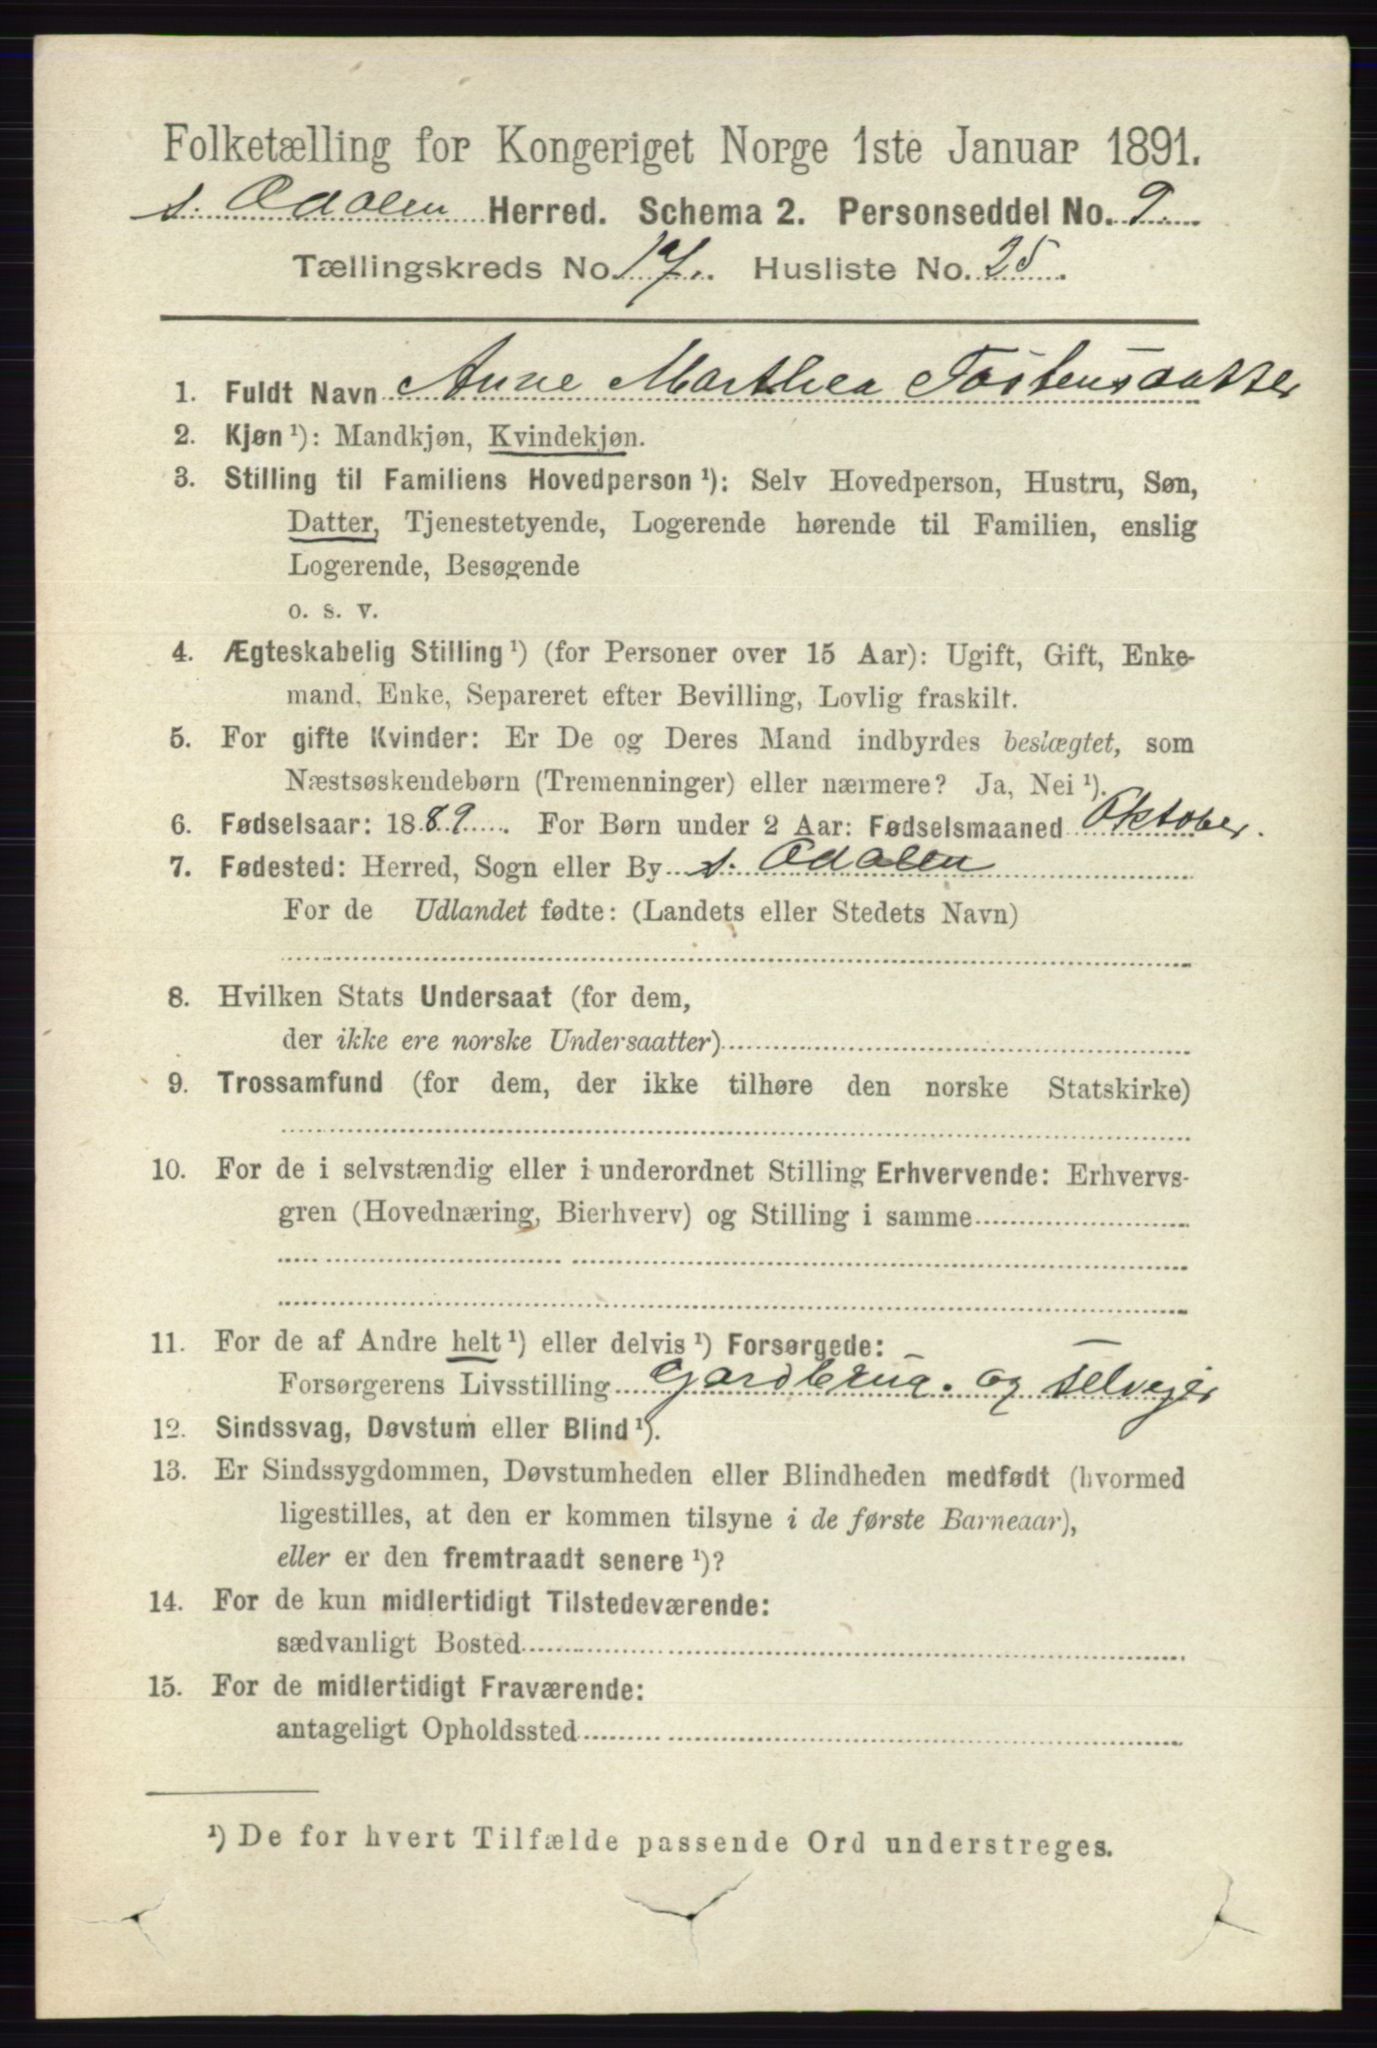 Folketælling for Kongeriget Norge 1ste Januar 1891.
s. Odalen Herred. Schema 2. Personseddel No. 9.
Tællingskreds No. 17. Husliste No. 25.
1. Fuldt Navn Anne Marthea Tostensdatter
2. Kjøn ¹): Mandkjøn, Kvindekjøn.
3. Stilling til Familiens Hovedperson ¹): Selv Hovedperson, Hustru, Søn,
Datter, Tjenestetyende, Logerende hørende til Familien, enslig
Logerende, Besøgende
o. s. v.
4. Ægteskabelig Stilling ¹) (for Personer over 15 Aar): Ugift, Gift, Enke-
mand, Enke, Separeret efter Bevilling, Lovlig fraskilt.
5. For gifte Kvinder: Er De og Deres Mand indbyrdes beslægtet, som
Næstsøskendebørn (Tremenninger) eller nærmere? Ja, Nei ¹).
6. Fødselsaar: 1889. For Børn under 2 Aar: Fødselsmaaned Oktober.
7. Fødested: Herred, Sogn eller By s. Odalen
For de Udlandet fødte: (Landets eller Stedets Navn)
8. Hvilken Stats Undersaat (for dem,
der ikke ere norske Undersaatter)
9. Trossamfund (for dem, der ikke tilhøre den norske Statskirke)
10. For de i selvstændig eller i underordnet Stilling Erhvervende: Erhvervs-
gren (Hovednæring, Bierhverv) og Stilling i samme
11. For de af Andre helt ¹) eller delvis ¹) Forsørgede:
Forsørgerens Livsstilling Gardbrug. og selvejer
12. Sindssvag, Døvstum eller Blind ¹).
13. Er Sindssygdommen, Døvstumheden eller Blindheden medfødt (hvormed
ligestilles, at den er kommen tilsyne i de første Barneaar),
eller er den fremtraadt senere ¹)?
14. For de kun midlertidigt Tilstedeværende:
sædvanligt Bosted
15. For de midlertidigt Fraværende:
antageligt Opholdssted
¹) De for hvert Tilfælde passende Ord understreges.